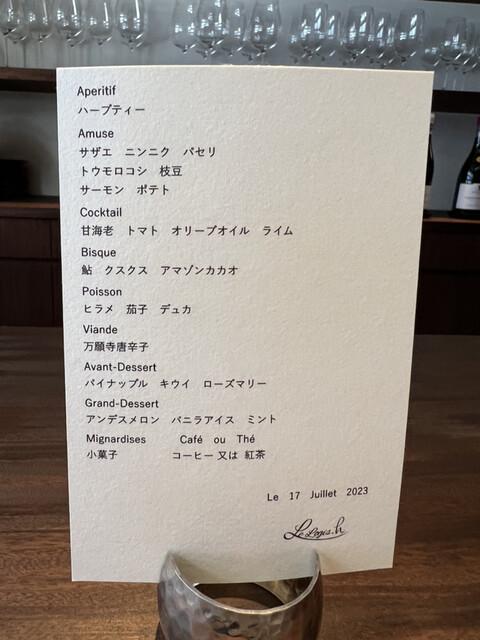 Aperitif
ハーブティー
Amuse
サザエ ニンニク パセリ
トウモロコシ 枝豆
サーモン ポテト
Cocktail
甘海老 トマト オリーブオイル ライム
Bisque
鮎 クスクス アマゾンカカオ
Poisson
ヒラメ 茄子 デュカ
Viande
万願寺唐辛子
Avant-Dessert
パイナップル キウイ ローズマリー
Grand-Dessert
アンデスメロン バニラアイス ミント
Mignardises Café ou Thé
小菓子 コーヒー 又は 紅茶
Le 17 Juillet 2023
Le Logis.h